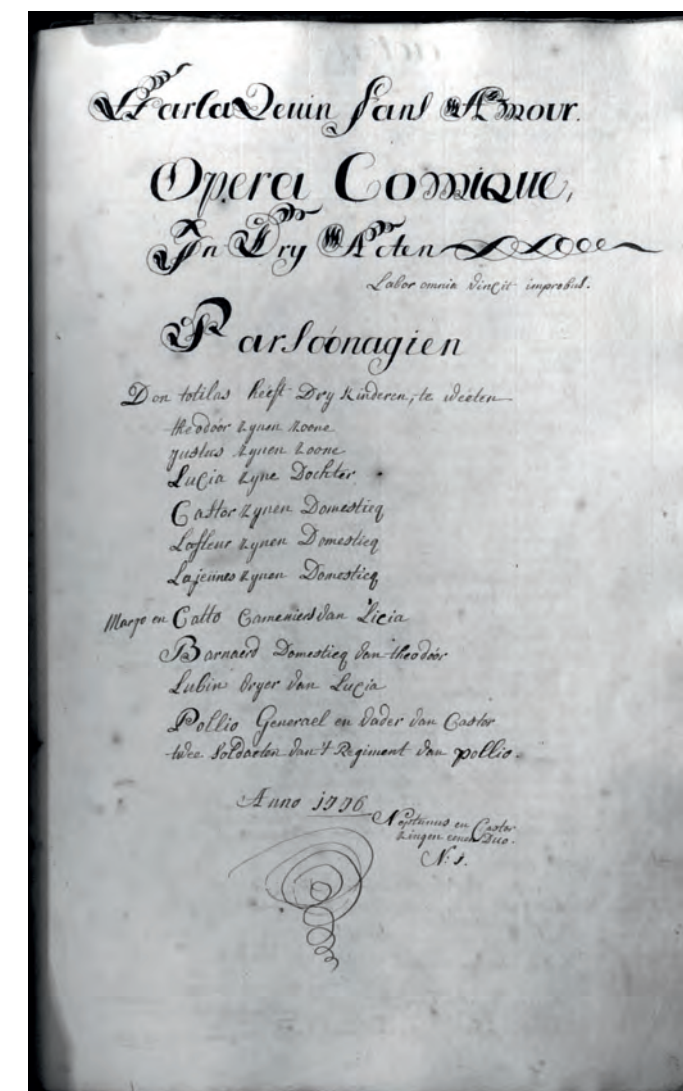 HarlaQeuin sans Amour.
Opera Comique,
In Dry Acten
Labor omnia vincit improbus.
Parsoónagien
Don totilas heéft Dry kinderen, te wéeten
theodóor zynen zoone
justus zynen zoone
Lucia zyne Dochter
Castor zynen Domesticq
Lafleur zynen Domesticq
Lajeunes zynen Domesticq
Margo en Catto Cameniers van Licia
Barnaerd Domesticq van theodóor
Lubin vryer van Lucia
Pollio Generael en vader van Castor
twee soldaeten van 't Regiment van pollio.
Anno 1776
Neptunus en Castor
zingen eenen Duo.
N: 1.